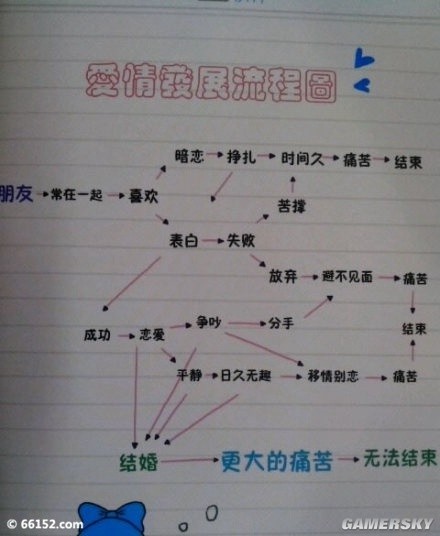 愛情發展流程圖
暗恋→挣扎→时间久→痛苦→结束
朋友→常在一起→喜欢
苦撑
表白→失败
放弃→避不见面→痛苦
成功→恋爱→争吵→分手
结束
平静→日久无趣→移情别恋→痛苦
结婚→更大的痛苦→无法结束
© 66152.com
GAMERSKY